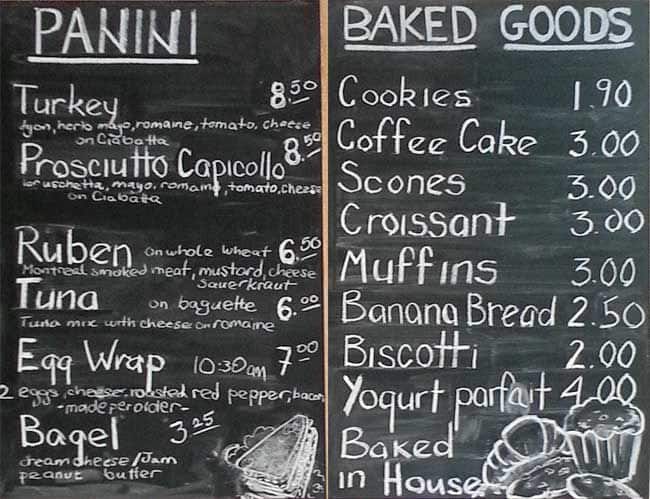 PANINI
Turkey 8.50
dijon, herb mayo, romaine, tomato, cheese
on Ciabatta
Prosciutto Capicollo 8.50
bruschetta, mayo, romaine, tomato, cheese
on Ciabatta
Ruben on whole wheat 6.50
Montreal smoked meat, mustard, cheese
sauerkraut
Tuna on baguette 6.00
Tuna mix with cheese on romaine
Egg Wrap 10:30am 7.00
2 eggs, cheese, roasted red pepper, bacon
-made per order-
Bagel 3.25
cream cheese/Jam
peanut butter
BAKED GOODS
Cookies 1.90
Coffee Cake 3.00
Scones 3.00
Croissant 3.00
Muffins 3.00
Banana Bread 2.50
Biscotti 2.00
Yogurt parfait 4.00
Baked
in House